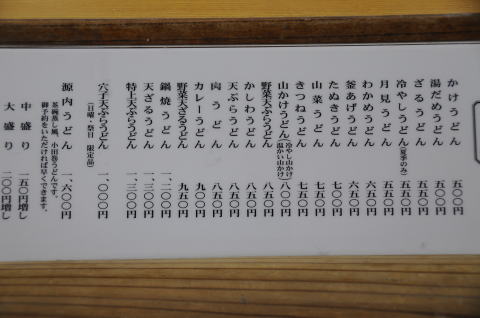 かけうどん 五〇〇円
湯だめうどん 五〇〇円
ざるうどん 五五〇円
冷やしうどん(夏季のみ) 五五〇円
月見うどん 五五〇円
わかめうどん 六五〇円
釜あげうどん 六五〇円
たぬきうどん 七〇〇円
山菜うどん 七五〇円
きつねうどん 七五〇円
山かけうどん(冷やし山かけ)(温かい山かけ) 八〇〇円
野菜天ぷらうどん 八五〇円
かしわうどん 八五〇円
天ぷらうどん 八五〇円
肉うどん 八五〇円
カレーうどん 九〇〇円
野菜天ざるうどん 九五〇円
鍋焼うどん 一、二〇〇円
天ざるうどん 一、三〇〇円
特上天ぷらうどん 一、三〇〇円
穴子天ぷらうどん 一、〇〇〇円
(日曜・祭日 限定品)
源内うどん 一、六〇〇円
茶碗蒸し風、小田巻うどんです。
御予約をいただければ早くできます。
中盛り 一五〇円増し
大盛り 二〇〇円増し